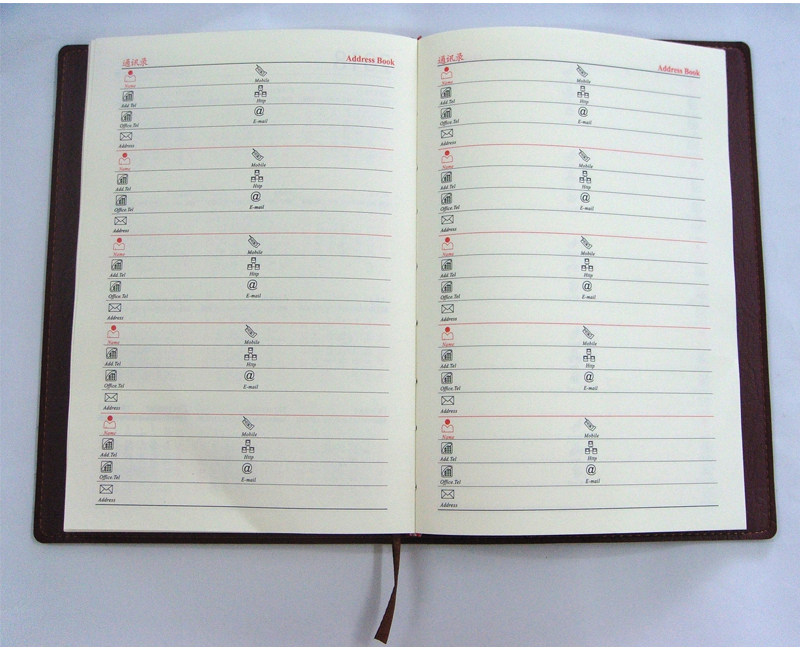 通讯录 Address Book
Name Mobile
Add.Tel Http
Office.Tel @ E-mail
Address
Name Mobile
Add.Tel Http
Office.Tel @ E-mail
Address
Name Mobile
Add.Tel Http
Office.Tel @ E-mail
Address
Name Mobile
Add.Tel Http
Office.Tel @ E-mail
Address
Name Mobile
Add.Tel Http
Office.Tel @ E-mail
Address
通讯录 Address Book
Name Mobile
Add.Tel Http
Office.Tel @ E-mail
Address
Name Mobile
Add.Tel Http
Office.Tel @ E-mail
Address
Name Mobile
Add.Tel Http
Office.Tel @ E-mail
Address
Name Mobile
Add.Tel Http
Office.Tel @ E-mail
Address
Name Mobile
Add.Tel Http
Office.Tel @ E-mail
Address